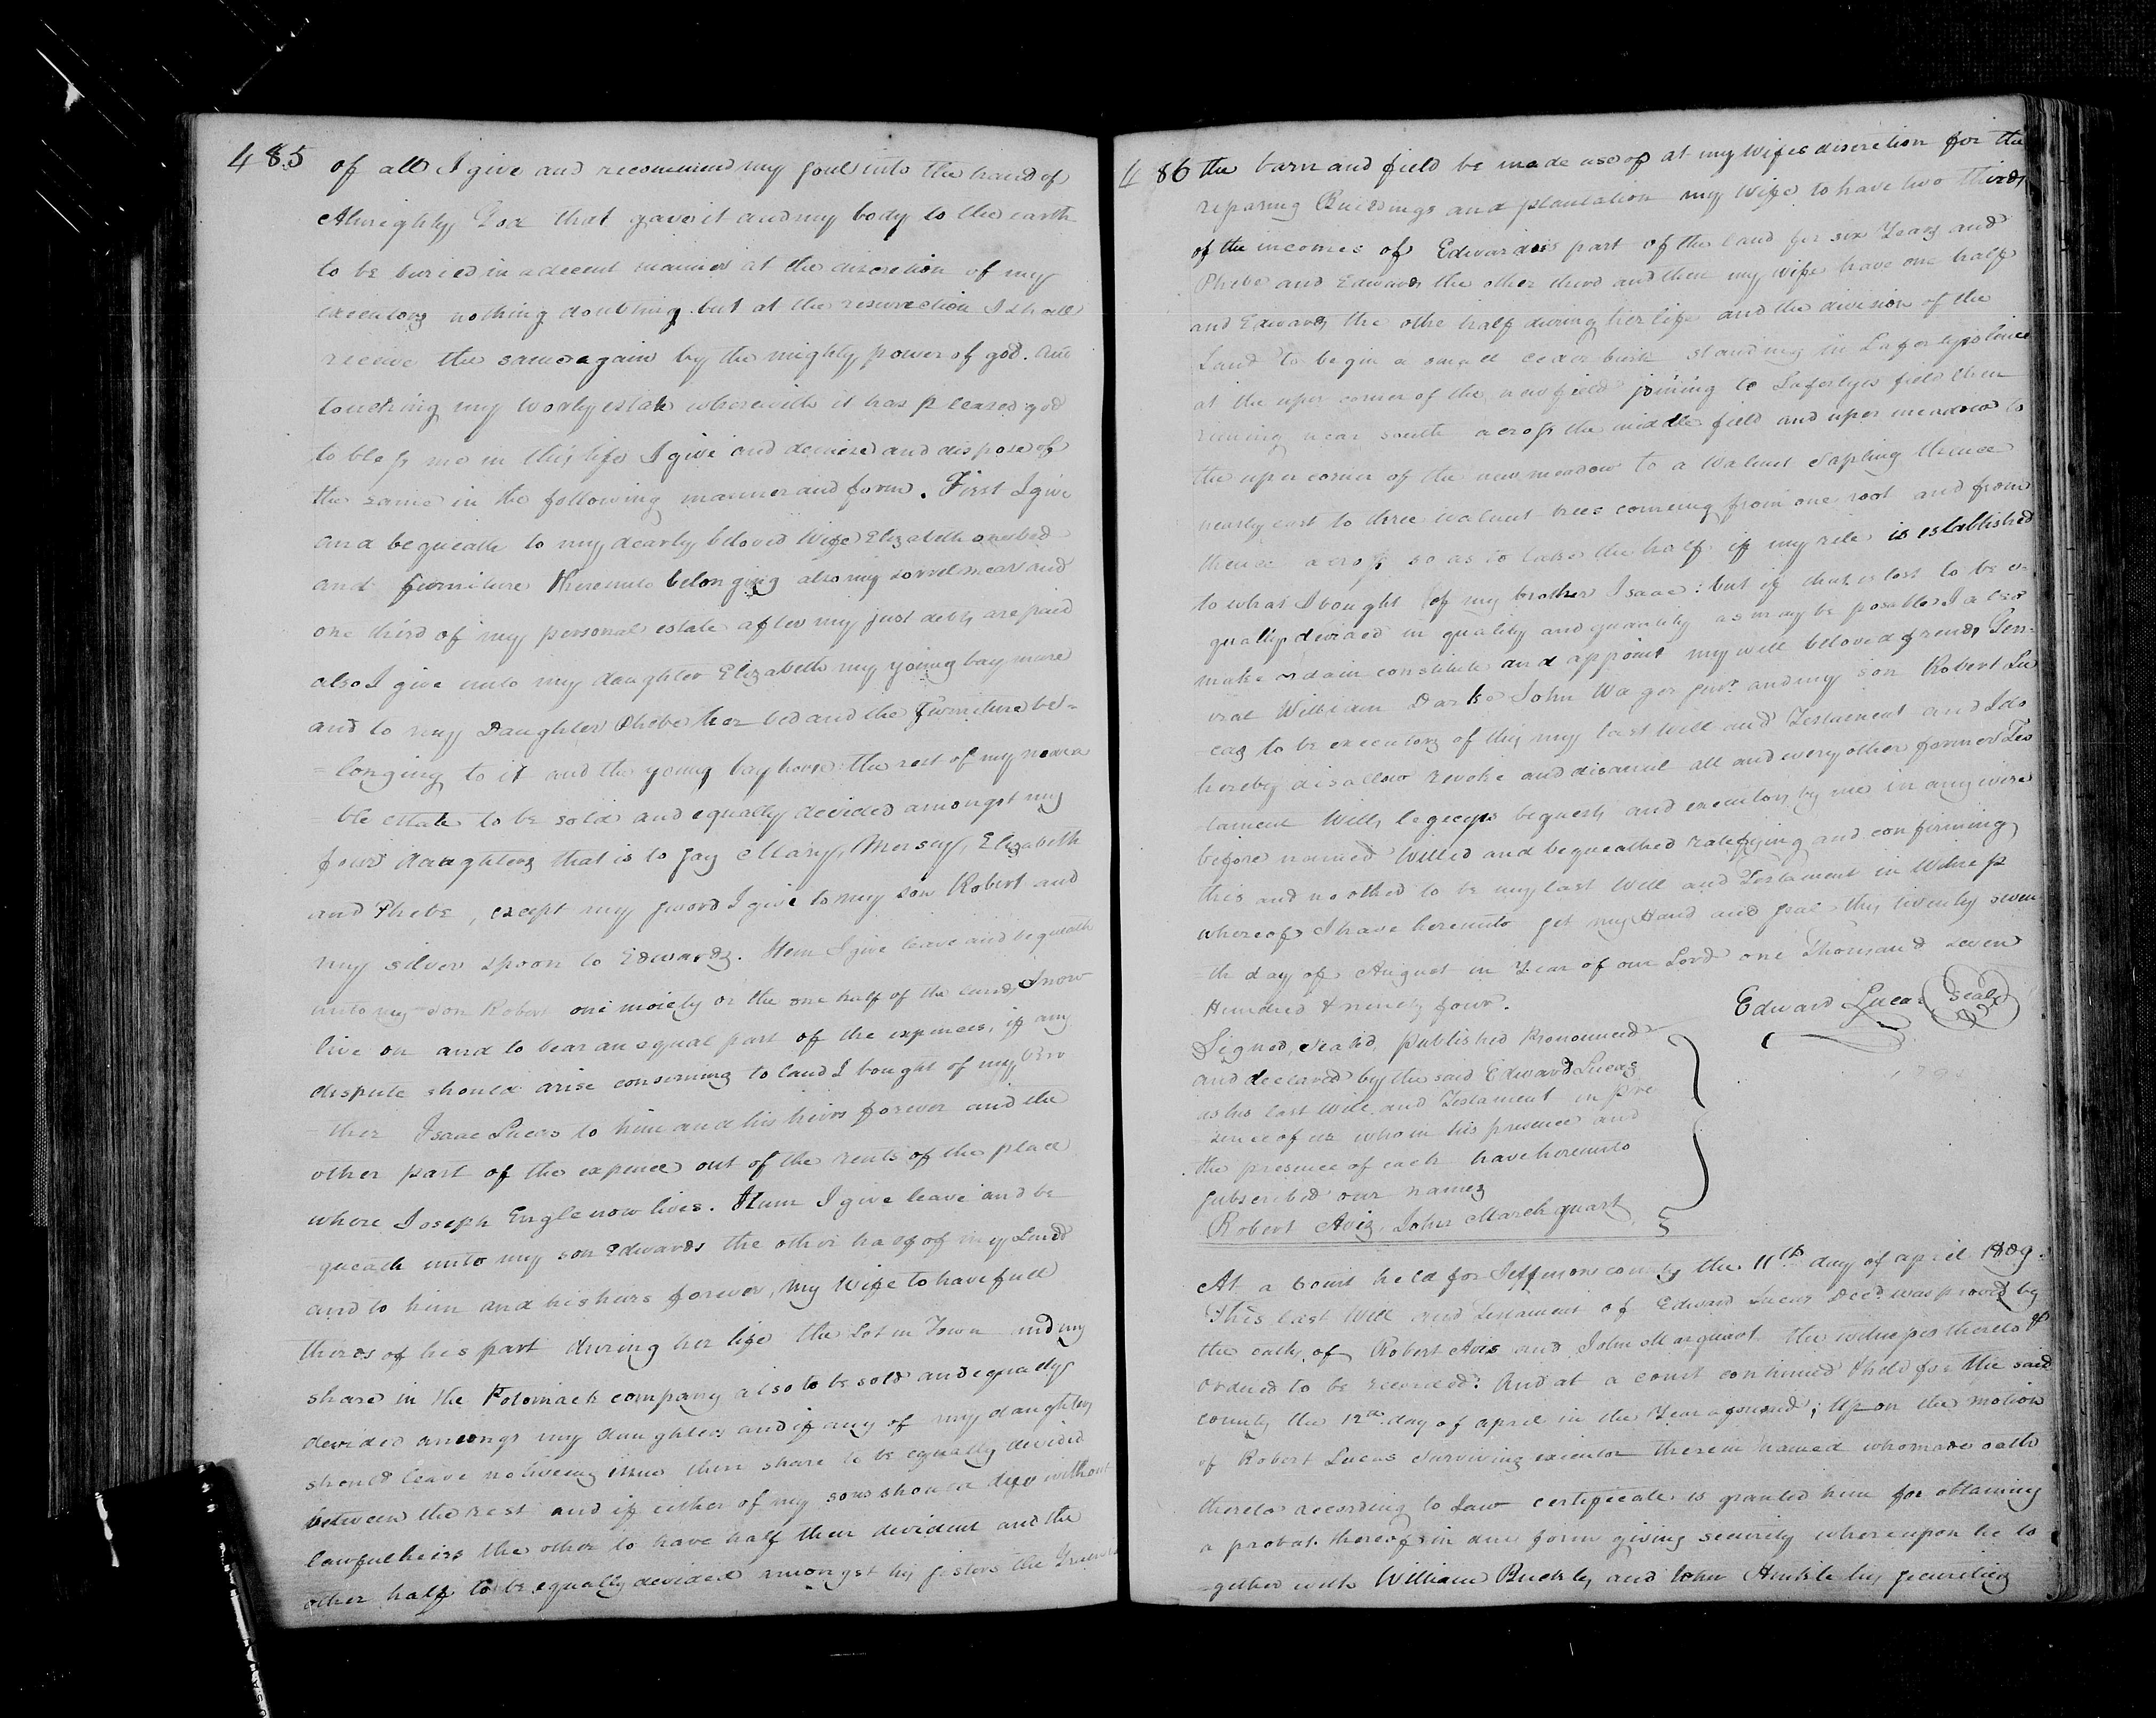 485
of all I give and recommend my soul into the hand of
Almighty God that gave it and my body to the earth
to be buried in a decent manner at the discretion of my
executors nothing doubting but at the resurrection I shall
receive the same again by the mighty power of god. And
touching my worly estate wherewith it has pleased god
to bless me in this life I give and demise and dispose of
the same in the following manner and form. First I give
and bequeath to my dearly beloved Wife Elizabeth one bed
and furniture thereunto belonging also my sorrel mear and
one third of my personal estate after my just debts are paid
also I give unto my daughter Elizabeth my young bay mare
and to my Daughter Phebe her bed and the Furniture be=
=longing to it and the young bay horse: the rest of my movea
=ble estate to be sold and equally devided amongst my
four daughters that is to say Mary, Mersey, Elizabeth
and Phebe, except my sword I give to my son Robert and
my silver spoon to Edward. Item I give leave and bequeath
unto my son Robert one moiety or the one half of the land I now
live on and to bear an equal part of the expences, if any
dispute should arise conserning to land I bought of my bro
=ther Isaac Lucas to him and his heirs forever and the
other part of the expence out of the rents of the place
where Joseph Engle now lives. Item I give leave and be
queath unto my son Edwards the other half of my Land
and to him and his heirs forever, my Wife to have full
therds of his part during her life the Lot in Town and my
share in the Potomack company also to be sold and equally
devided amongs my daughters and if any of my daughters
should leave no liveing issue their share to be equally devided
between the rest and if either of my sons should dye without
lawful heirs the other to have half their devident and the
other half to be equally devided amongst his sisters the
486 the barn and field be made use of at my wifes discretion for the
reparing Buildings and plantation my Wife to have two thirds
of the incomes of Edwards part of the land for six Years and
Phebe and Edwards the other third and then my wife have one half
and Edwards the othe half during her life and the division of the
Land to begin a small ceder bush standing in Lafertys line
at the uper corner of the new field joining to Lafertys field then
runing near south across the middle field and uper meadow to
the uper corner of the new meadow to a Walnut sapling thence
nearly east to three walnut trees comeing from one root and from
thence across so as to take the half if my rite is established
to what I bought of my brother Isaac: but if that is lost to be e=
qually devided in quality and quantity as may be posable I also
make ordain constitute and appoint my well beloved frends Gen=
eral William Darke John Wager Junr. and my son Robert Lu
=cas to be executors of this my last will and Testament and I do
hereby disallow revoke and disannul all and every other former Tes
=tament Wills legceys bequests and executors by me in any wise
before named Willed and bequeathed ratefying and confirming
this and no other to be my last Will and Testament in Witness
whereof I have hereunto set my Hand and seal this twenty seven
=th day of August in Year of our Lord one Thousand seven
Hundred & ninety four.
Edward Lucas (Seal)
Signed, Sealed, published pronounced
and declared by the said Edward Lucas
as his last Will and Testament in pre
=sence of us who in his presence and
the presence of each have hereunto
subscribed our names
Robert Avis, John Marchquart
At a Court held for Jefferson county the 11th day of april 1809.
This last Will and Testament of Edward Lucas Decd. was proved by
the oaths of Robert Avis and John Marquart the witnesses thereto &
ordered to be recorded: And at a court continued & held for the said
county the 12th day of april in the Year aforesaid; Upon the motion
of Robert Lucas surviving executor therein named who made oath
thereto according to Law certificate is granted him for obtaining
a probat thereof in due form giving security whereupon he to
=gether with William Buckles and John Hinkle his securities